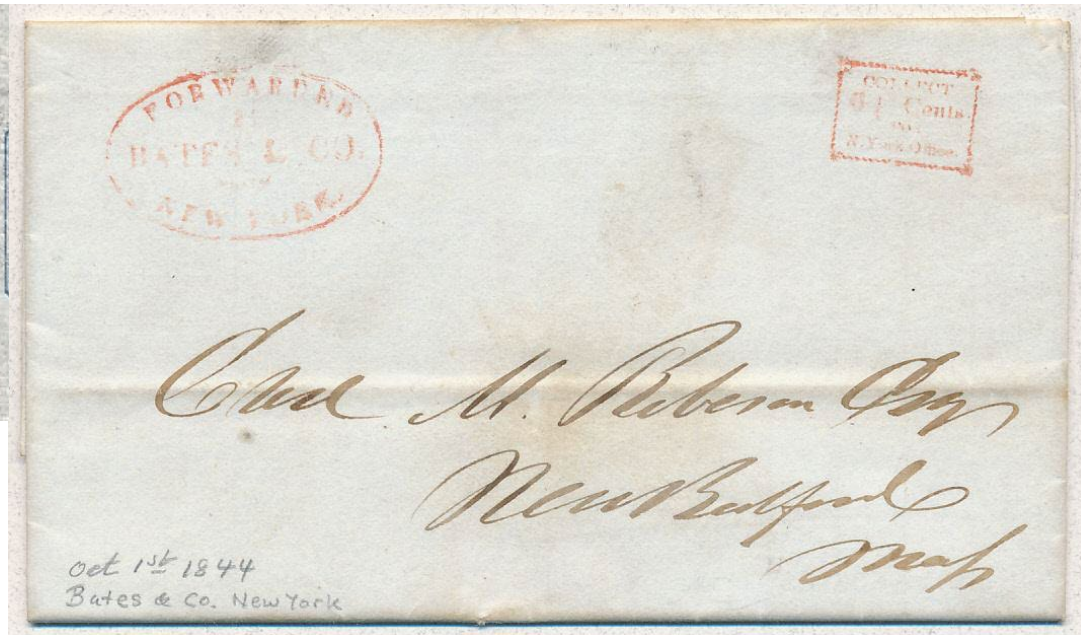 FORWARDED
BATES & CO.
NEW YORK.
COLLECT
6¼ Cents
N. York Office.
M. Esq
New Bedford
Mass
Oct 1st 1844
Bates & Co. New York